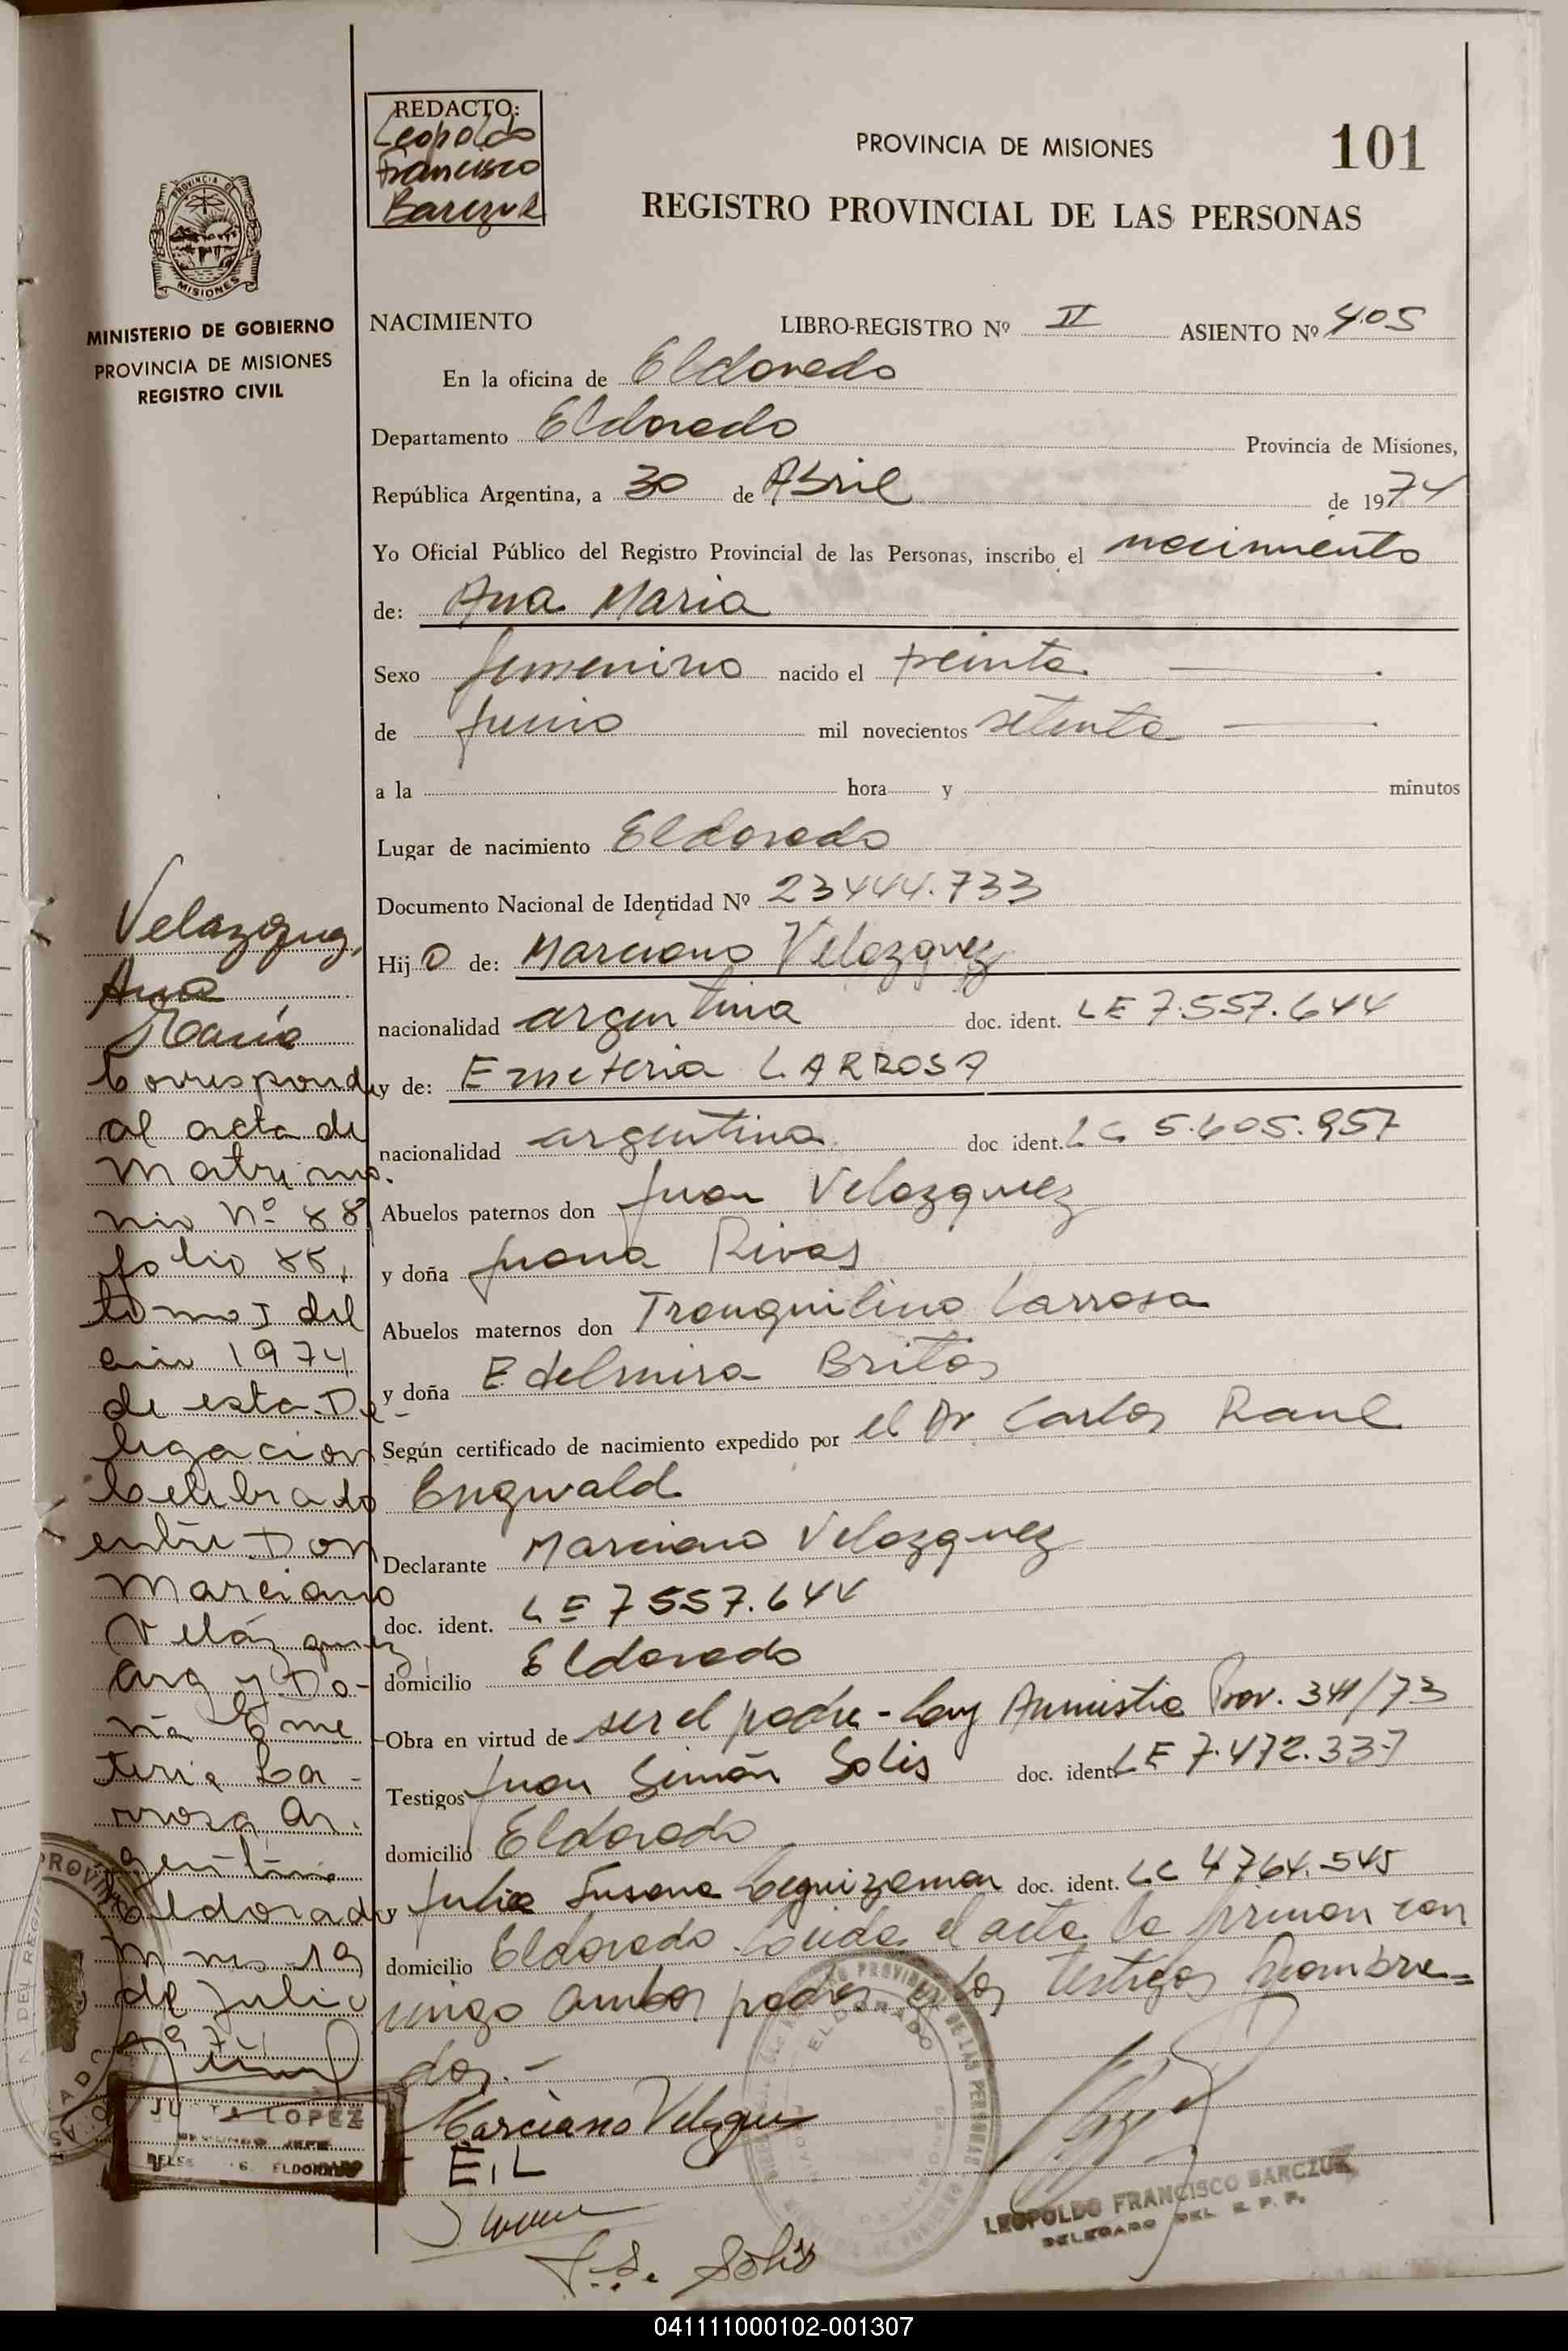 REDACTO:
Leopoldo
Francisco
Barczuk
PROVINCIA DE MISIONES
101
REGISTRO PROVINCIAL DE LAS PERSONAS
PROVINCIA DE
MISIONES
MINISTERIO DE GOBIERNO
PROVINCIA DE MISIONES
REGISTRO CIVIL
NACIMIENTO LIBRO-REGISTRO Nº II ASIENTO Nº 405
En la oficina de Eldorado
Departamento Eldorado Provincia de Misiones,
República Argentina, a 30 de Abril de 1974
Yo Oficial Público del Registro Provincial de las Personas, inscribo el nacimiento
de: Ana Maria
Sexo femenino nacido el treinta
de junio mil novecientos setenta
a la hora y minutos
Lugar de nacimiento Eldorado
Documento Nacional de Identidad Nº 23444.733
Hij O de: Marciano Velazquez
nacionalidad argentina doc. ident. LE 7.557.644
y de: Emeteria LARROSA
nacionalidad argentina doc ident. LC 5.605.957
Abuelos paternos don Juan Velazquez
y doña Juana Rivas
Abuelos maternos don Tranquilino Larrosa
y doña Edelmira Britos
Según certificado de nacimiento expedido por el Dr Carlos Raul
Engwald
Declarante Marciano Velazquez
doc. ident. LE 7557.644
domicilio Eldorado
Obra en virtud de ser el padre - Ley Amnistia Prov. 341/73
Testigos Juan Simón Solis doc. ident. LE 7.472.337
domicilio Eldorado
y Julia Susana Leguizamon doc. ident. LC 4764.545
domicilio Eldorado. Leida el acta la firman con
migo ambos padres y los testigos nombra=
dos.-
Marciano Velazquez
E, L
J.S. Solis
LEOPOLDO FRANCISCO BARCZUK
DELEGADO DEL R. P. P.
Velazquez,
Ana
María
Corresponde
al acta de
Matrimo-
nio Nº 88
folio 88,
tomo I del
año 1974
de esta De-
legacion
Celebrado
entre Don
Marciano
Velázquez
arg y Do-
ña Eme
teria La-
rrosa Ar-
gentina
Eldorado
Mnes. 19
de Julio
de 74
LOPEZ
JEFE
ELDORADO
ELDORADO
041111000102-001307